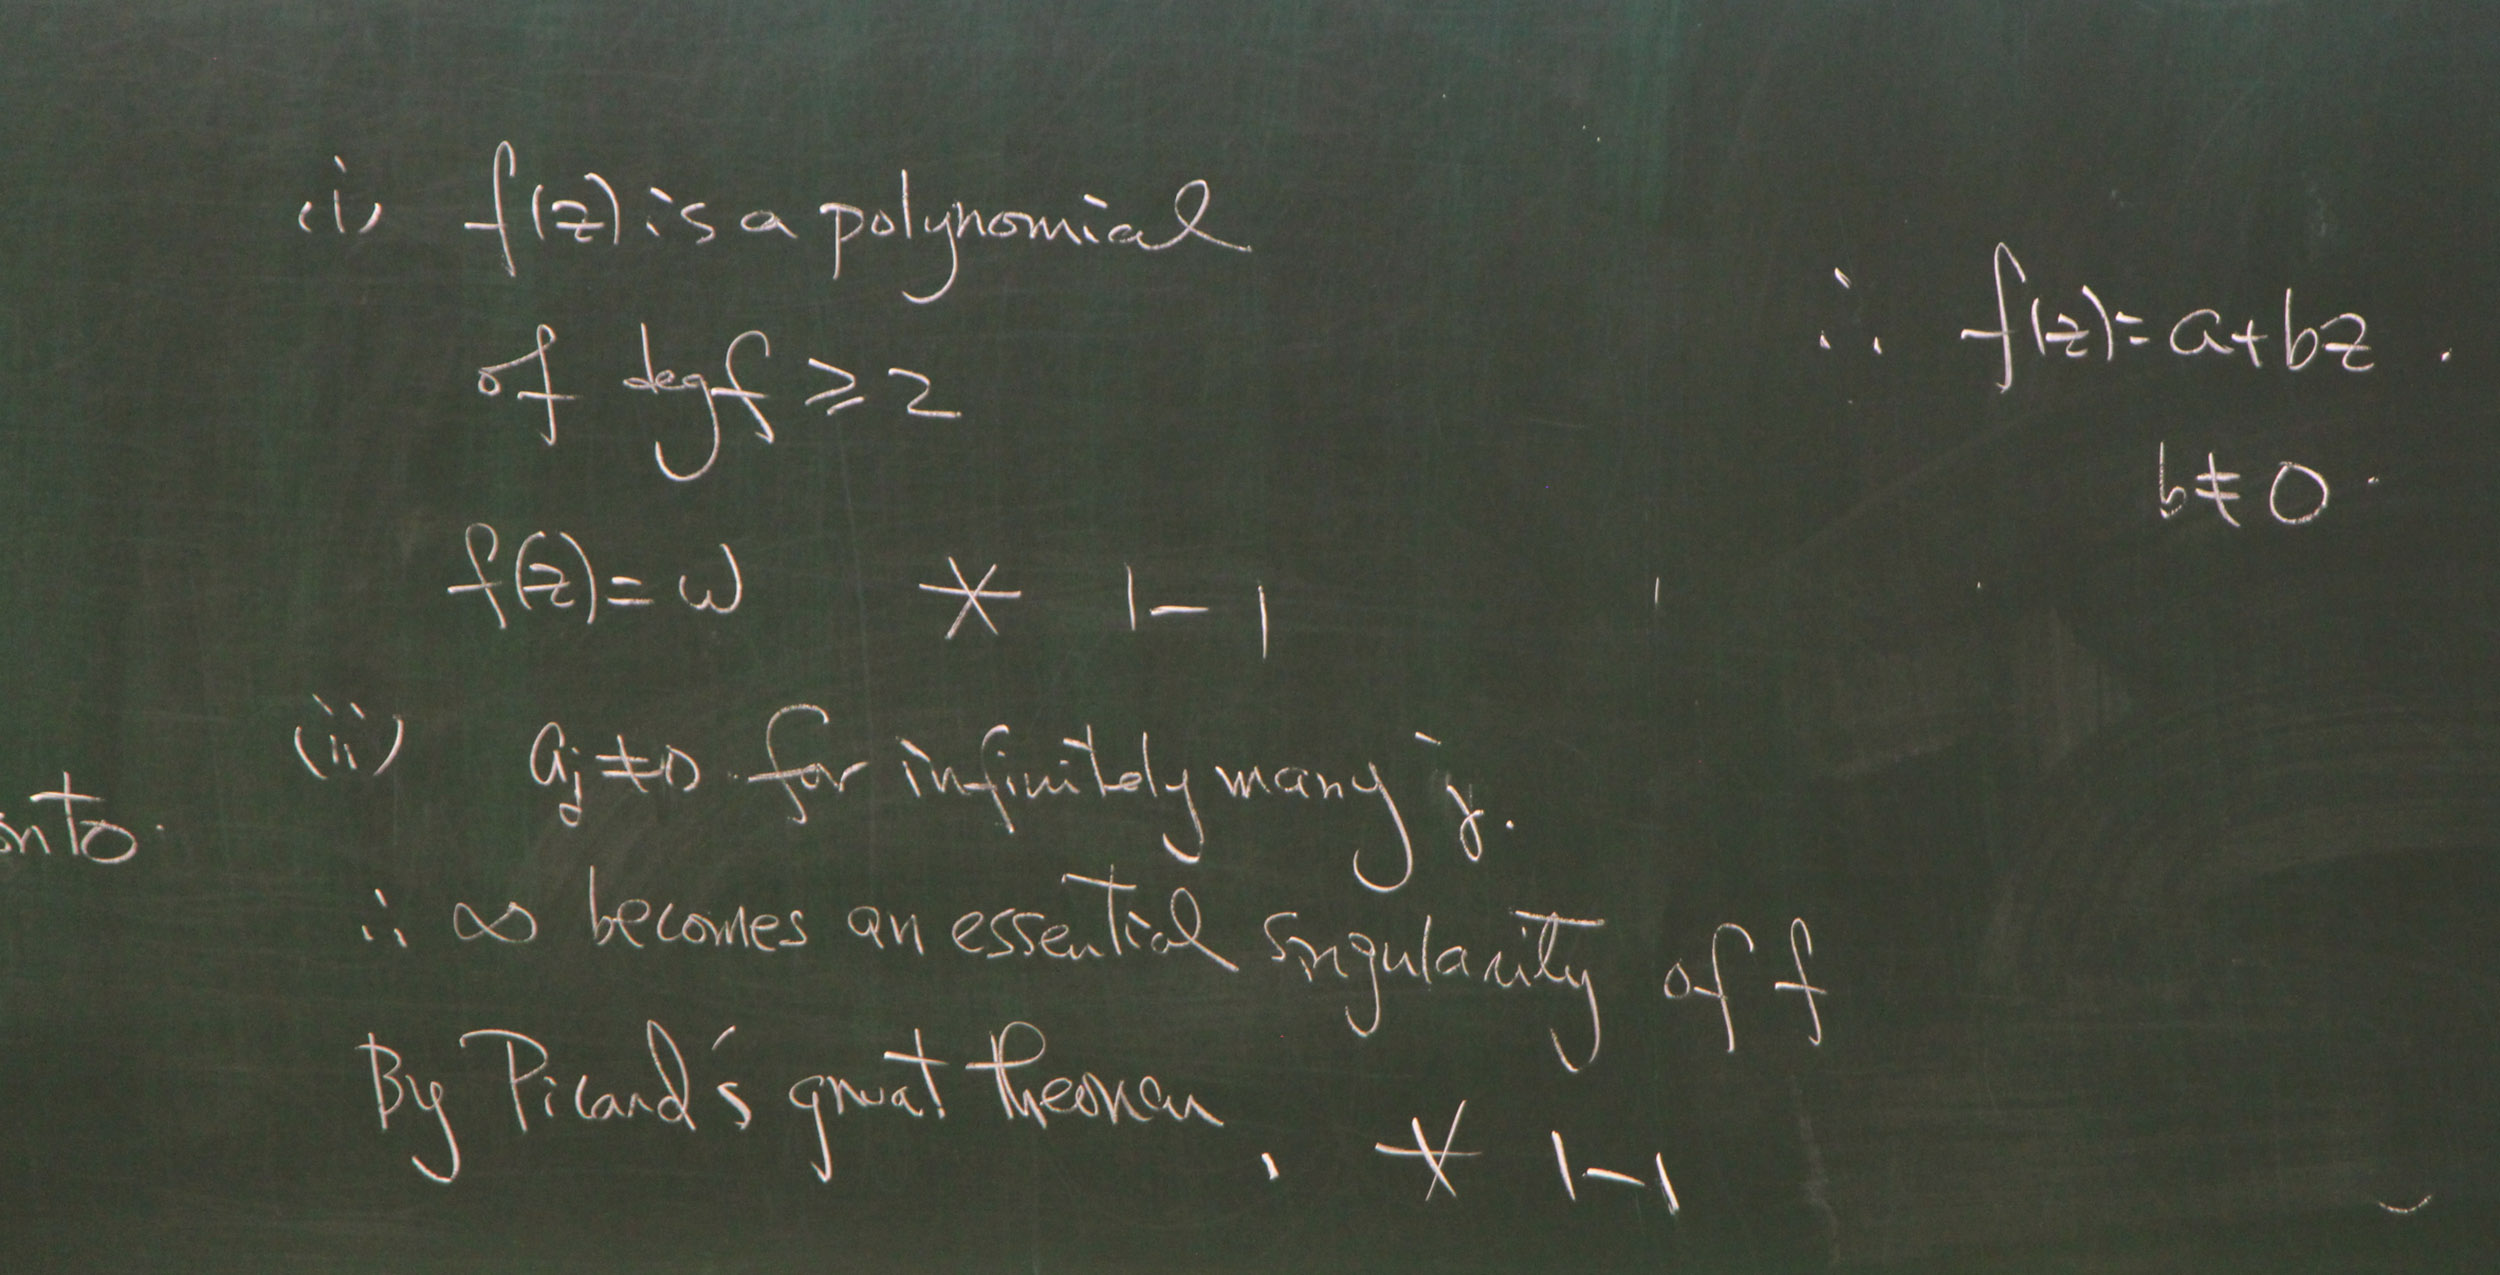 (i) f(z) is a polynomial
of deg f ≥ 2
f(z) = ω ※ 1-1
(ii) aj ≠ 0 for infinitely many j.
∴ ∞ becomes an essential singularity of f
By Picard's great theorem, ※ 1-1
onto.
∴ f(z) = a + bz.
b ≠ 0.